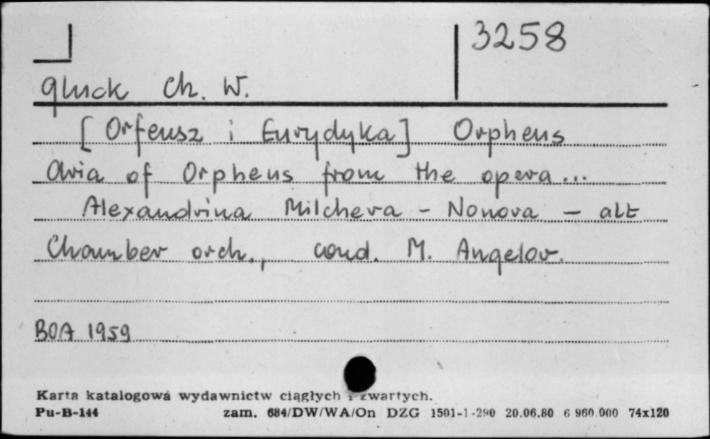 3258
Gluck Ch. W.
[Orfeusz i Eurydyka] Orpheus
Aria of Orpheus from the opera...
Alexandrina Milcheva - Nonova - alt
Chamber orch., cond. M. Angelov.
BOA 1959
Karta katalogowa wydawnictw ciągłych i zwartych.
Pu-B-144 zam. 684/DW/WA/On DZG 1501-1-290 20.06.80 6 960 000 74x120